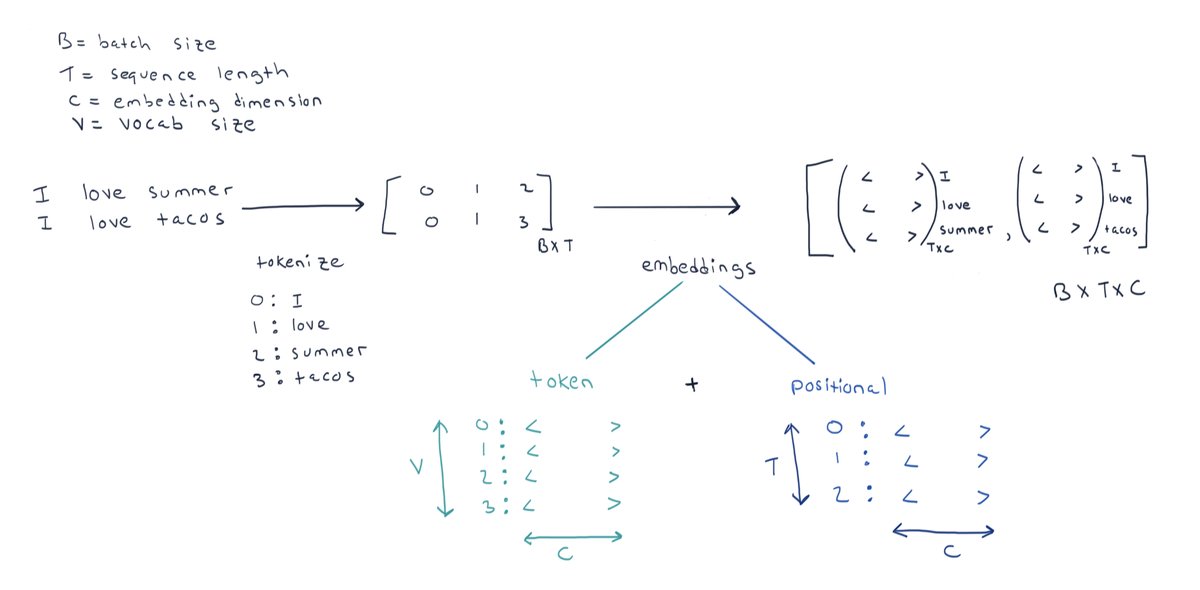 B = batch size
T = sequence length
C = embedding dimension
V = vocab size
I love summer
I love tacos
tokenize
0 : I
1 : love
2 : summer
3 : tacos
0 1 2
0 1 3
B X T
embeddings
[ ( < > ) I
< > love
< > summer
TXC
,
( < > ) I ]
< > love
< > tacos
TXC
B X T X C
token + positional
V
0 : < >
1 : < >
2 : < >
3 : < >
C
T
0 : < >
1 : < >
2 : < >
C